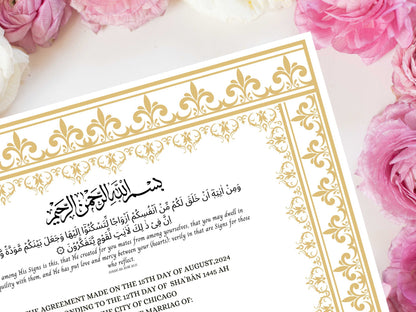 بسم الله الرحمن الرحيم
وَمِنْ آيَاتِهِ أَنْ خَلَقَ لَكُم مِّنْ أَنفُسِكُمْ أَزْوَاجًا لِّتَسْكُنُوا إِلَيْهَا وَجَعَلَ بَيْنَكُم مَّوَدَّةً
إِنَّ فِي ذَٰلِكَ لَآيَاتٍ لِّقَوْمٍ يَتَفَكَّرُونَ
among His Signs is this, that He created for you mates from among yourselves, that you may dwell in
quility with them, and He has put love and mercy between your (hearts): verily in that are Signs for those
who reflect.
THE AGREEMENT MADE ON THE 15TH DAY OF AUGUST,2024
ONDING TO THE 12TH DAY OF SHA'BĀN 1445 AH
THE CITY OF CHICAGO
MARRIAG OF: